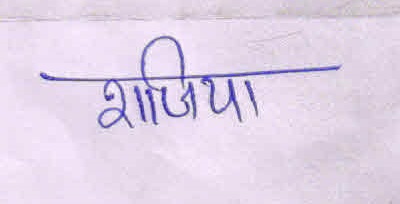 शाजिया